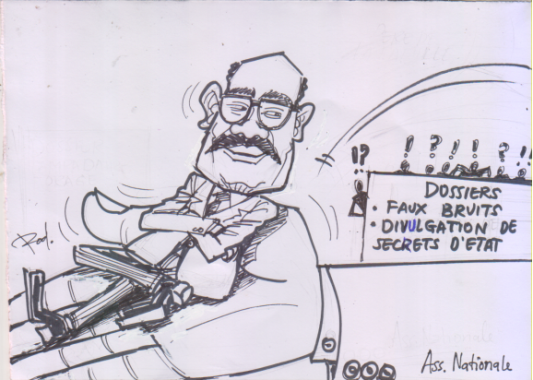 !? ! ? ! ! ? !!
DOSSIERS
• FAUX BRUITS
• DIVULGATION DE
SECRETS D'ETAT
Ass. Nationale